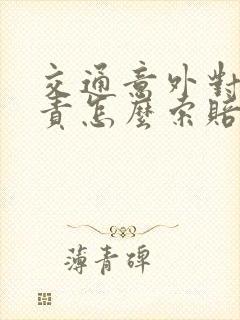 交通意外對
責怎麼索賠
薄青碑